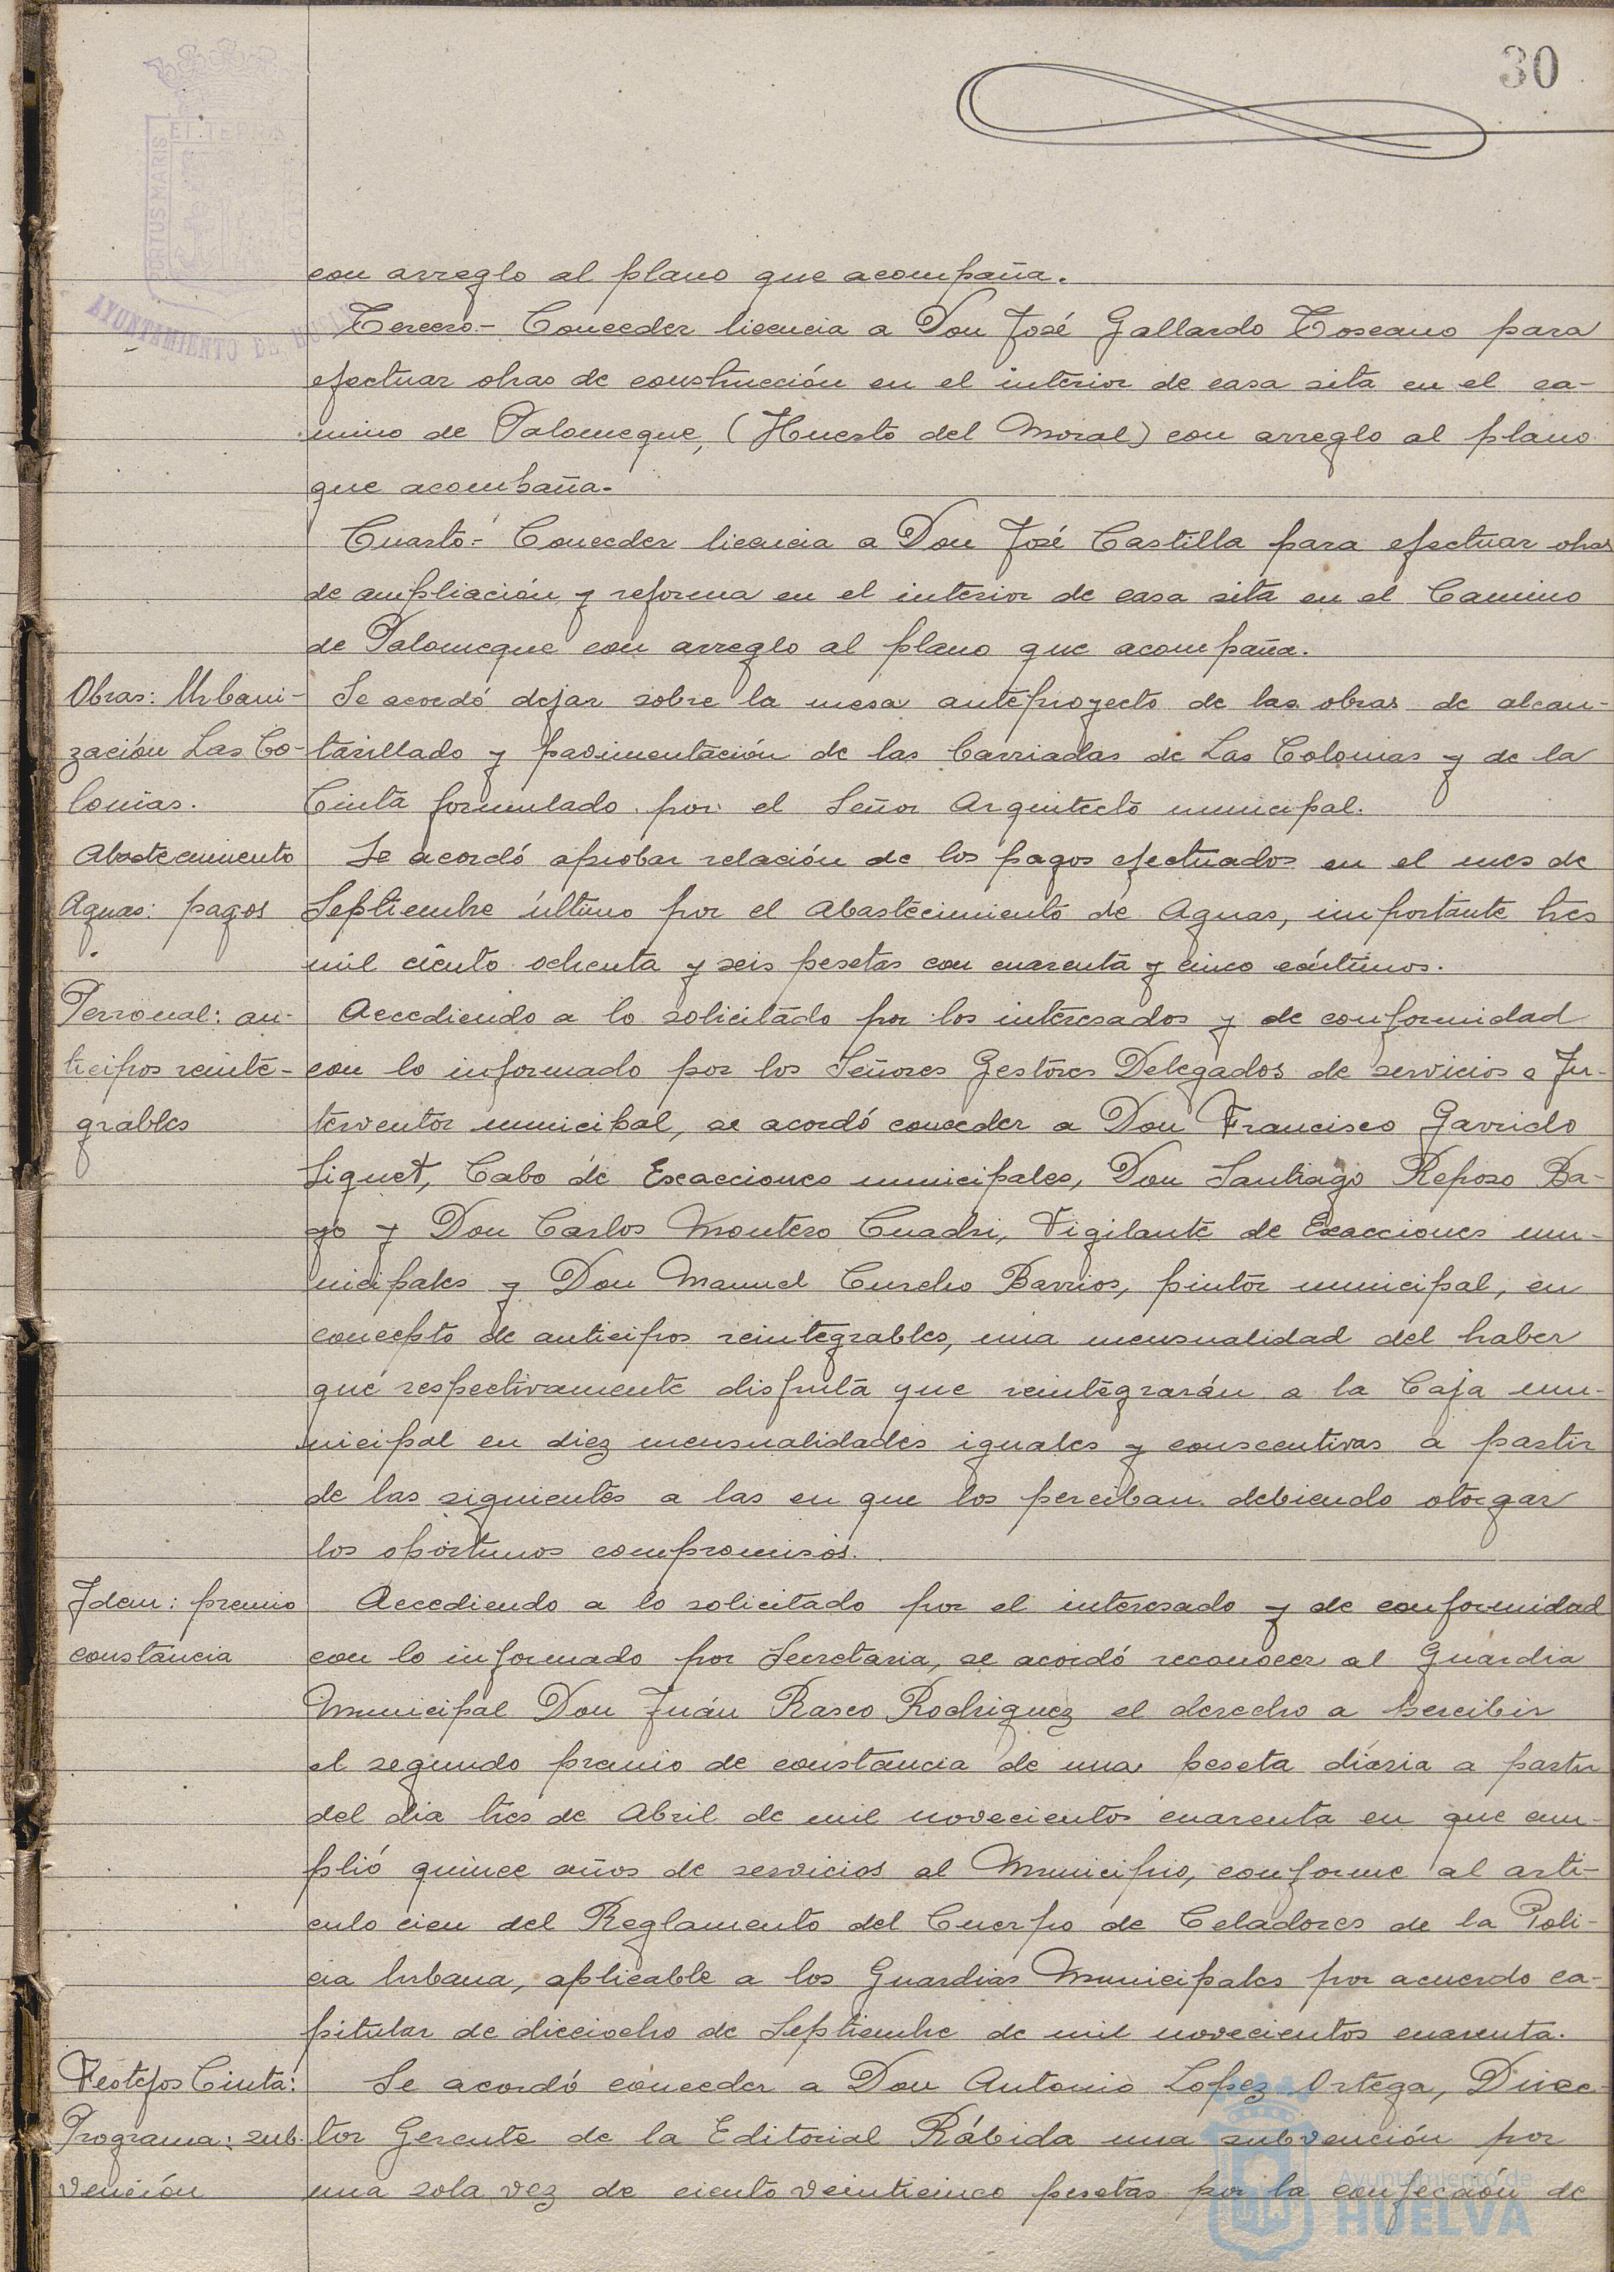 30
PORTUS MARIS
ET TERRÆ
AYUNTAMIENTO DE HUELVA
con arreglo al plano que acompaña.
Tercero.- Conceder licencia a Don José Gallardo Toscano para
efectuar obras de construcción en el interior de casa sita en el ca-
mino de Palomeque, (Huerto del Moral) con arreglo al plano
que acompaña.
Cuarto.- Conceder licencia a Don José Castilla para efectuar obras
de ampliación y reforma en el interior de casa sita en el Camino
de Palomeque con arreglo al plano que acompaña.
Obras: Urbani-
zación Las Co-
lonias.
Se acordó dejar sobre la mesa anteproyecto de las obras de alcan-
tarillado y pavimentación de las barriadas de Las Colonias y de la
Cinta formulado por el Señor Arquitecto municipal.
Abastecimiento
Aguas: pagos
Se acordó aprobar relación de los pagos efectuados en el mes de
Septiembre último por el Abastecimiento de Aguas, importante tres
mil ciento ochenta y seis pesetas con cuarenta y cinco céntimos.
Personal: an-
ticipos reinte-
grables
Accediendo a lo solicitado por los interesados y de conformidad
con lo informado por los Señores Gestores Delegados de servicios e In-
terventor municipal, se acordó conceder a Don Francisco Garrido
Siquet, Cabo de Exacciones municipales, Don Santiago Reposo Ba-
yo y Don Carlos Montero Cuadri, Vigilante de Exacciones mu-
nicipales y Don Manuel Curcho Barrios, pintor municipal, en
concepto de anticipos reintegrables, una mensualidad del haber
que respectivamente disfruta que reintegrarán a la Caja mu-
nicipal en diez mensualidades iguales y consecutivas a partir
de las siguientes a las en que los perciban debiendo otorgar
los oportunos compromisos.
Idem: premio
constancia
Accediendo a lo solicitado por el interesado y de conformidad
con lo informado por Secretaria, se acordó reconocer al Guardia
Municipal Don Juán Rasco Rodriguez el derecho a percibir
el segundo premio de constancia de una peseta diaria a partir
del dia tres de Abril de mil novecientos cuarenta en que cum-
plió quince años de servicios al Municipio, conforme al arti-
culo cien del Reglamento del Cuerpo de Celadores de la Poli-
cia Urbana, aplicable a los Guardias Municipales por acuerdo ca-
pitular de dieciocho de Septiembre de mil novecientos cuarenta.
Festejos Cinta:
Programa: sub-
vención
Se acordó conceder a Don Antonio Lopez Ortega, Direc-
tor Gerente de la Editorial Rábida una subvención por
una sola vez de ciento veinticinco pesetas por la confección de
Ayuntamiento de
HUELVA